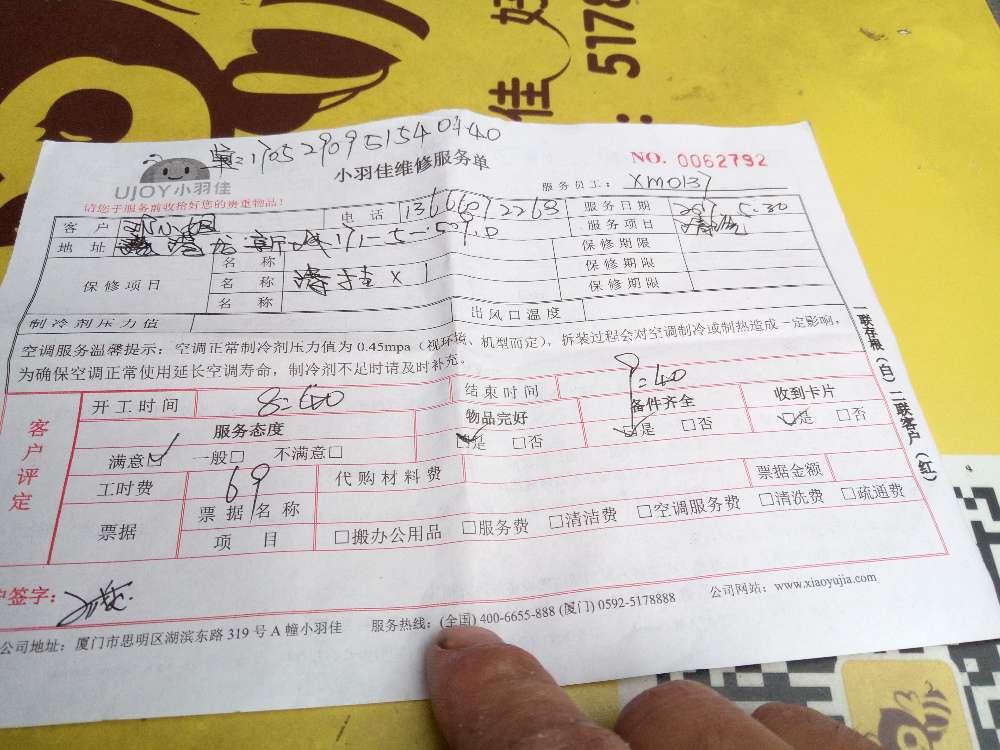 好
佳
: 5178
单:1705290951540440
UJOY小羽佳
小羽佳维修服务单
NO. 0062792
服务员工: XM0137
请您于服务前收拾好您的贵重物品!
客户 电话 13666072263 服务日期 2017 5.30
地址 171-5-509.0 服务项目 清洗
保修项目 名称 保修期限
名称 ×1 保修期限
名称 保修期限
制冷剂压力值 出风口温度
空调服务温馨提示:空调正常制冷剂压力值为 0.45mpa(视环境、机型而定),拆装过程会对空调制冷或制热造成一定影响,
为确保空调正常使用延长空调寿命,制冷剂不足时请及时补充。
客户评定
开工时间 8=40 结束时间 9=40
服务态度 物品完好 备件齐全 收到卡片
满意☑ 一般□ 不满意□ ☑是 □否 ☑是 □否 ☑是 □否
工时费 69 代购材料费 票据金额
票据 票据名称
项目 □搬办公用品 □服务费 □清洁费 □空调服务费 □清洗费 □疏通费
一联存根(白)二联客户(红)
户签字:
公司地址:厦门市思明区湖滨东路 319 号 A 幢小羽佳 服务热线:(全国) 400-6655-888 (厦门) 0592-5178888 公司网站:www.xiaoyujia.com